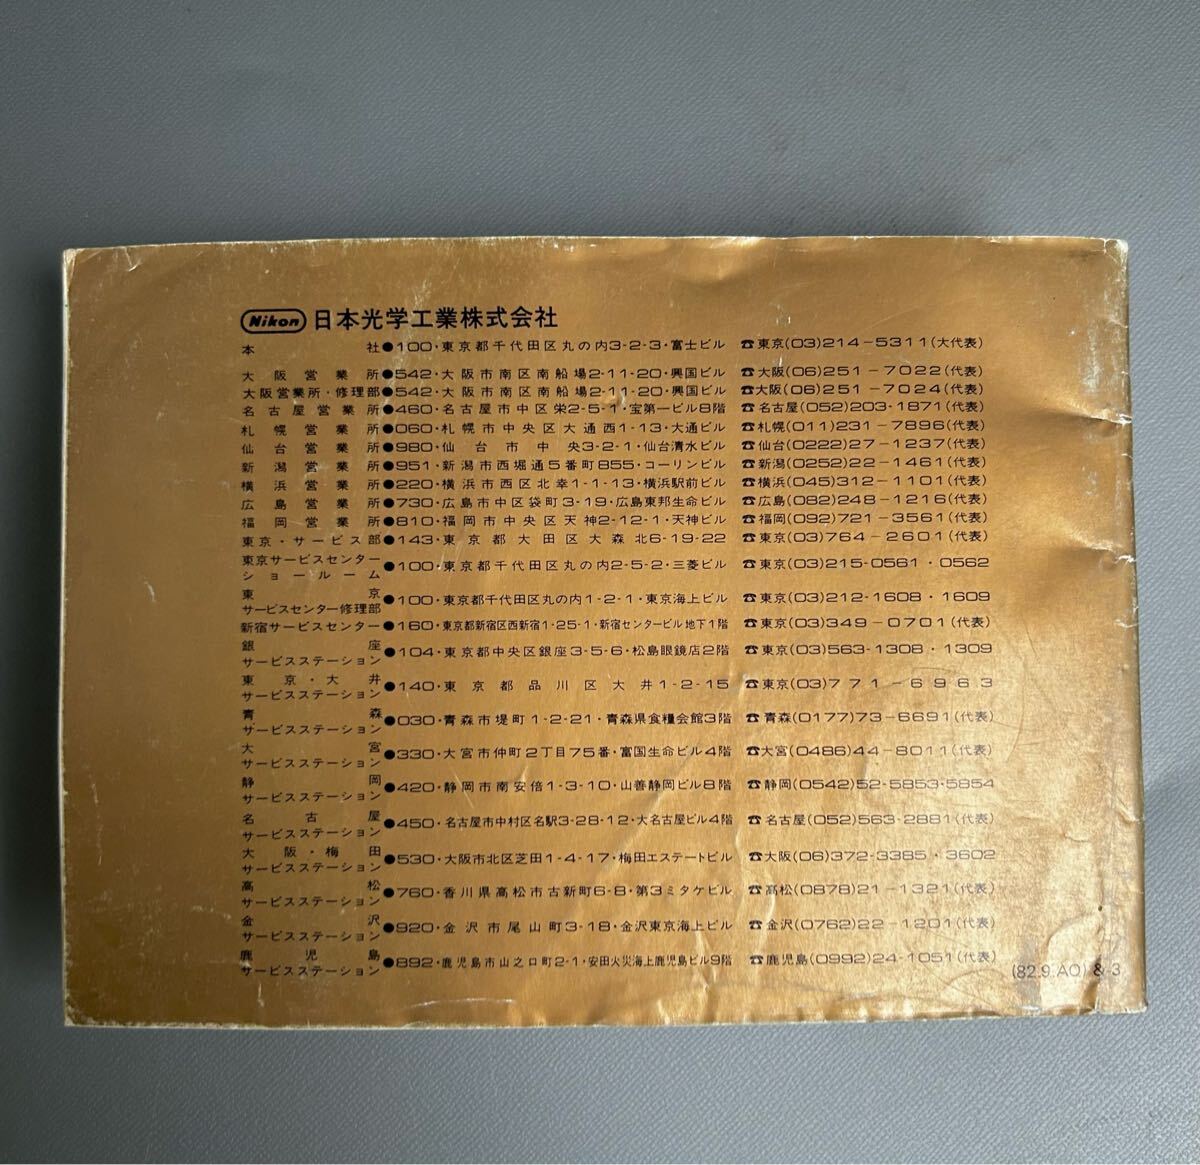 Nikon 日本光学工業株式会社
本社●100・東京都千代田区丸の内3-2-3・富士ビル ☎東京(03)214-5311(大代表)
大阪営業所●542・大阪市南区南船場2-11-20・興国ビル ☎大阪(06)251-7022(代表)
大阪営業所・修理部●542・大阪市南区南船場2-11-20・興国ビル ☎大阪(06)251-7024(代表)
名古屋営業所●460・名古屋市中区栄2-5-1・宝第一ビル8階 ☎名古屋(052)203-1871(代表)
札幌営業所●060・札幌市中央区大通西1-13・大通ビル ☎札幌(011)231-7896(代表)
仙台営業所●980・仙台市中央3-2-1・仙台清水ビル ☎仙台(0222)27-1237(代表)
新潟営業所●951・新潟市西堀通5番町855・コーリンビル ☎新潟(0252)22-1461(代表)
横浜営業所●220・横浜市西区北幸1-1-13・横浜駅前ビル ☎横浜(045)312-1101(代表)
広島営業所●730・広島市中区袋町3-19・広島東邦生命ビル ☎広島(082)248-1216(代表)
福岡営業所●810・福岡市中央区天神2-12-1・天神ビル ☎福岡(092)721-3561(代表)
東京・サービス部●143・東京都大田区大森北6-19-22 ☎東京(03)764-2601(代表)
東京サービスセンター
ショールーム●100・東京都千代田区丸の内2-5-2・三菱ビル ☎東京(03)215-0561・0562
東京
サービスセンター修理部●100・東京都千代田区丸の内1-2-1・東京海上ビル ☎東京(03)212-1608・1609
新宿サービスセンター●160・東京都新宿区西新宿1-25-1・新宿センタービル地下1階 ☎東京(03)349-0701(代表)
銀座
サービスステーション●104・東京都中央区銀座3-5-6・松島眼鏡店2階 ☎東京(03)563-1308・1309
東京・大井
サービスステーション●140・東京都品川区大井1-2-15 ☎東京(03)771-6963
青森
サービスステーション●030・青森市堤町1-2-21・青森県食糧会館3階 ☎青森(0177)73-6691(代表)
大宮
サービスステーション●330・大宮市仲町2丁目75番・富国生命ビル4階 ☎大宮(0486)44-8011(代表)
静岡
サービスステーション●420・静岡市南安倍1-3-10・山善静岡ビル8階 ☎静岡(0542)52-5853・5854
名古屋
サービスステーション●450・名古屋市中村区名駅3-28-12・大名古屋ビル4階 ☎名古屋(052)563-2881(代表)
大阪・梅田
サービスステーション●530・大阪市北区芝田1-4-17・梅田エステートビル ☎大阪(06)372-3385・3602
高松
サービスステーション●760・香川県高松市古新町6-8・第3ミタケビル ☎高松(0878)21-1321(代表)
金沢
サービスステーション●920・金沢市尾山町3-18・金沢東京海上ビル ☎金沢(0762)22-1201(代表)
鹿児島
サービスステーション●892・鹿児島市山之口町2-1・安田火災海上鹿児島ビル9階 ☎鹿児島(0992)24-1051(代表)
(82.9.AO) &-3